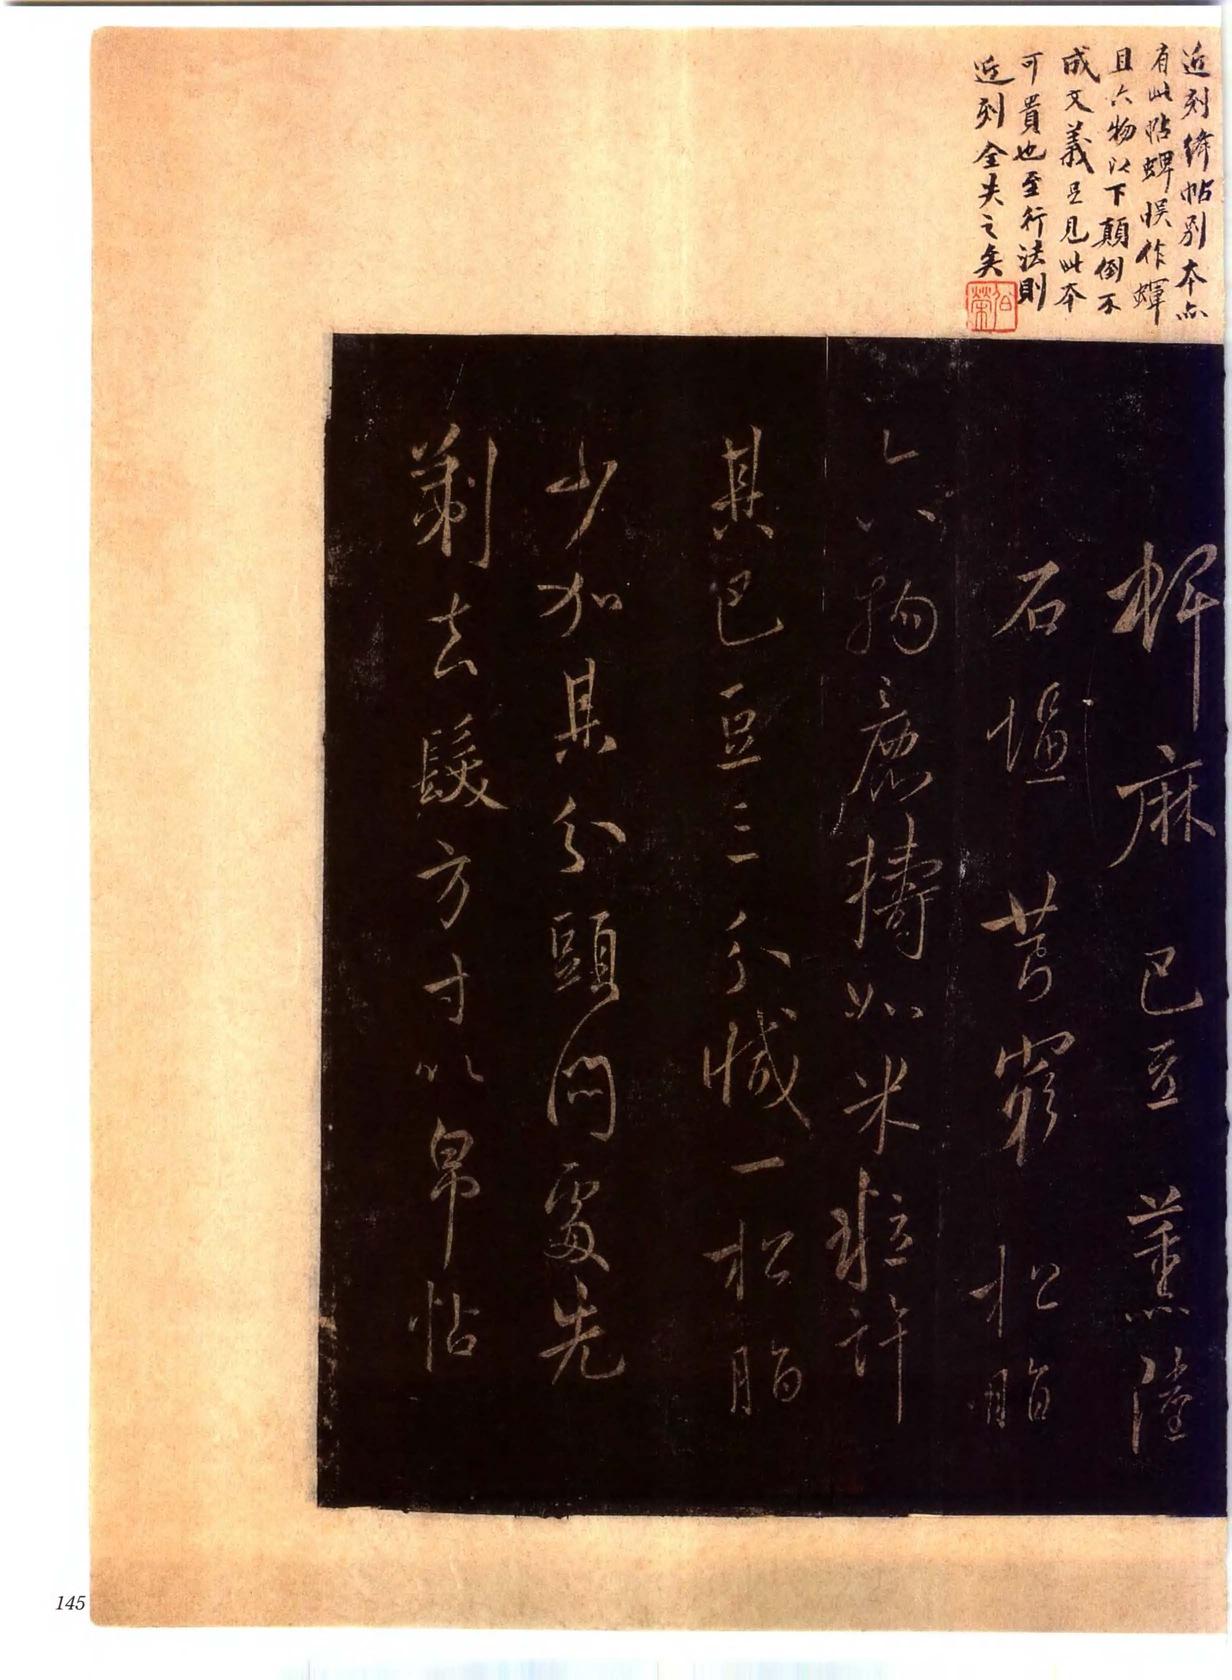 近刻絳帖別本亦
有此帖蜱悮作蟬
且六物以下顛倒不
成文義足見此本
可貴也至行法則
近刻全失之矣
蜱麻巴豆薰陸
石塩芎窮松脂
六物麁擣如米粒許
其巴豆三分減一松脂
少加某分頭悶處先
剃去髮方寸以帛帖
145